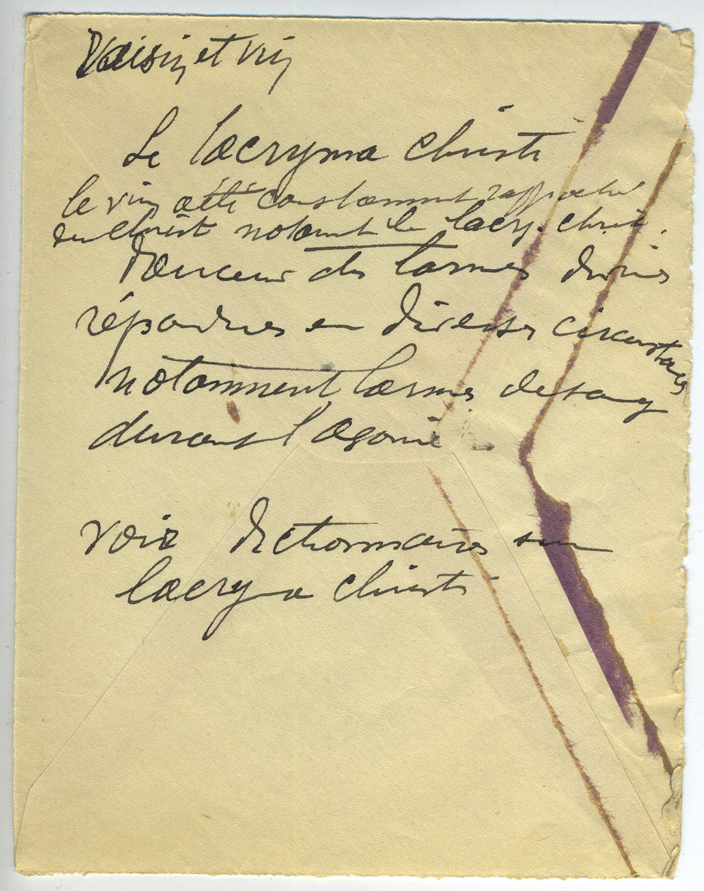 Raisin et vin
Le lacryma christi
le vin a été constamment rapproché
du Christ notamt le lacry. christi.
Douceur des larmes divines
répandues en diverses circonstances
notamment larmes de sang
durant l'agonie
voir dictionnaires sur
lacryma christi